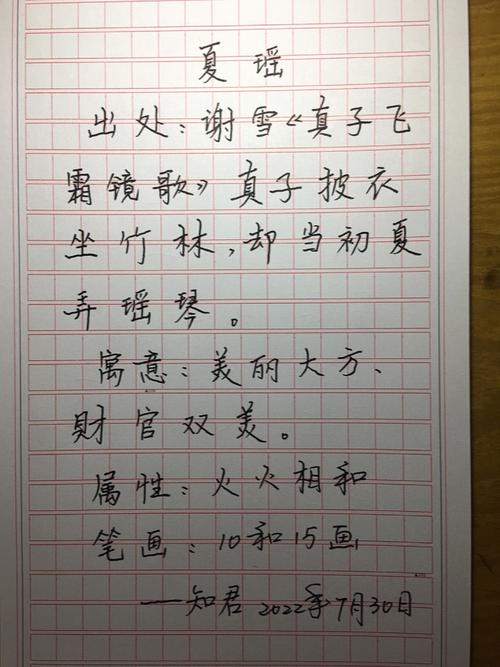 夏瑶
出处：谢雪《真子飞
霜镜歌》真子披衣
坐竹林，却当初夏
弄瑶琴。
寓意：美丽大方、
财官双美。
属性：火火相和
笔画：10和15画
——知君 2022年7月30日